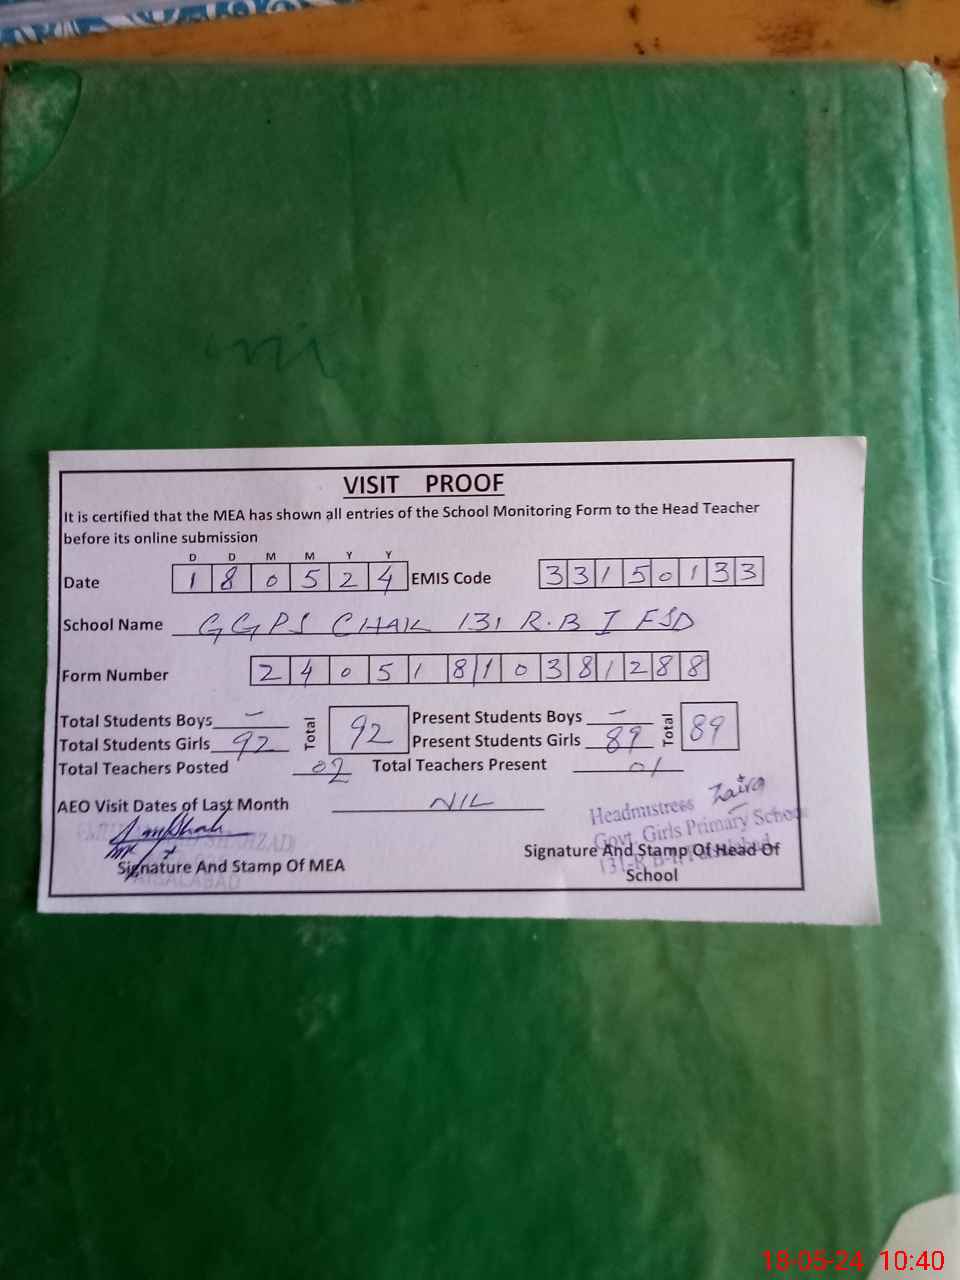 VISIT PROOF
It is certified that the MEA has shown all entries of the School Monitoring Form to the Head Teacher
before its online submission
D D M M Y Y
Date 1 8 0 5 2 4 EMIS Code 3 3 1 5 0 1 3 3
School Name GGPS CHAK 131 R.B I FSD
Form Number 2 4 0 5 1 8 1 0 3 8 1 2 8 8
Total Students Boys — Total 92 Present Students Boys — Total 89
Total Students Girls 92 Present Students Girls 89
Total Teachers Posted 02 Total Teachers Present 01
AEO Visit Dates of Last Month NIL
Headmistress Zaira
Govt. Girls Primary School
Signature And Stamp Of MEA
Signature And Stamp Of Head Of
School
18-05-24 10:40